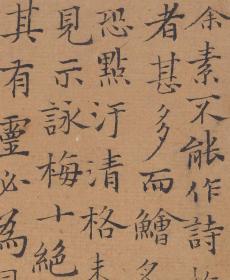 余素不能作詩
者甚多而鱠
恐點汙清格未
見示詠梅十絕
其有靈必為